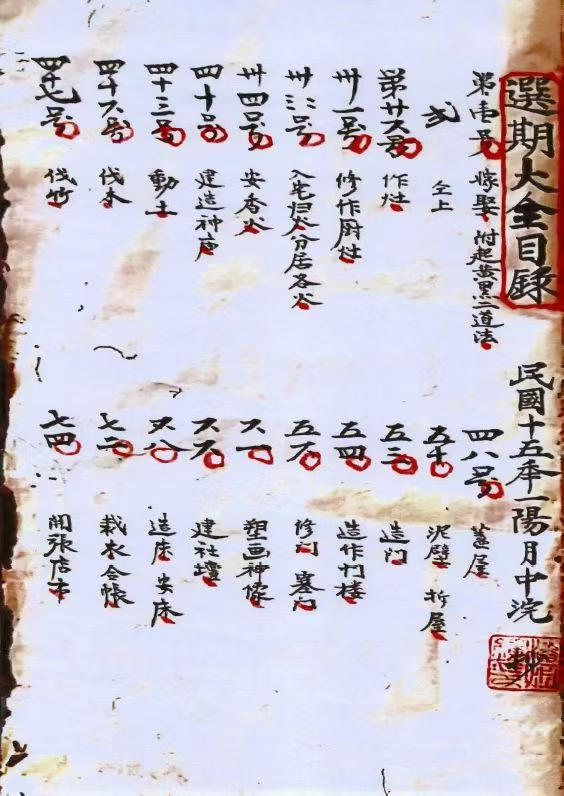 選期大全目錄
民國十五年一陽月中浣抄
第壹号 嫁娶 附起黄黑二道法
弍 仝上
第廿六号 作灶
卅一号 修作厨灶
卅三号 入宅归火分居各火
卅四号 安香火
四十号 建造神庙
四十三号 動土
四十六号 伐木
四十七号 伐竹
四八号 蓋屋
五十 泥壁 拆屋
五三 造门
五四 造作门楼
五六 修门 塞门
六一 塑画神像
六六 建社壇
六八 造床 安床
七二 裁衣合帳
七四 開張店